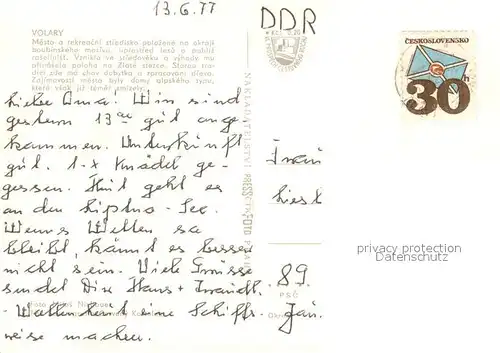 13.6.77
DDR
VOLARY
Město a rekreační středisko položené na okraji
boubínského masívu, uprostřed lesů a poblíž
rašelinišť. Vzniklo ve středověku a výhodu mu
přinášela poloha na Zlaté stezce. Starou tra-
dici zde má chov dobytka a zpracování dřeva.
Zajímavostí města byly domy alpského typu,
které však již téměř zmizely.
ČESKOSLOVENSKO
30h
NAKLADATELSTVÍ PRESSFOTO PRAHA
Liebe Oma! Wir sind
gestern 13 gut ange
kommen. Unterkunft
gut. 1-x Knödel ge-
gessen. Heut geht es
an den Liptno-See.
Wenns Wetter so
bleibt, könnt es besser
nicht sein. Viele Grüsse
sendet Dir Hans +
eine Schiffs-
reise machen.
Frau
89
PSČ
Foto
privacy protection
Datenschutz